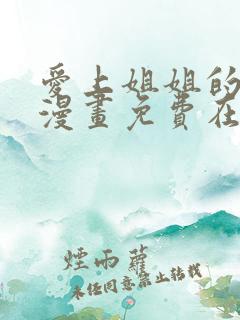 愛上姐姐的
漫畫免費在
煙雨蘿
未經同意禁止轉載